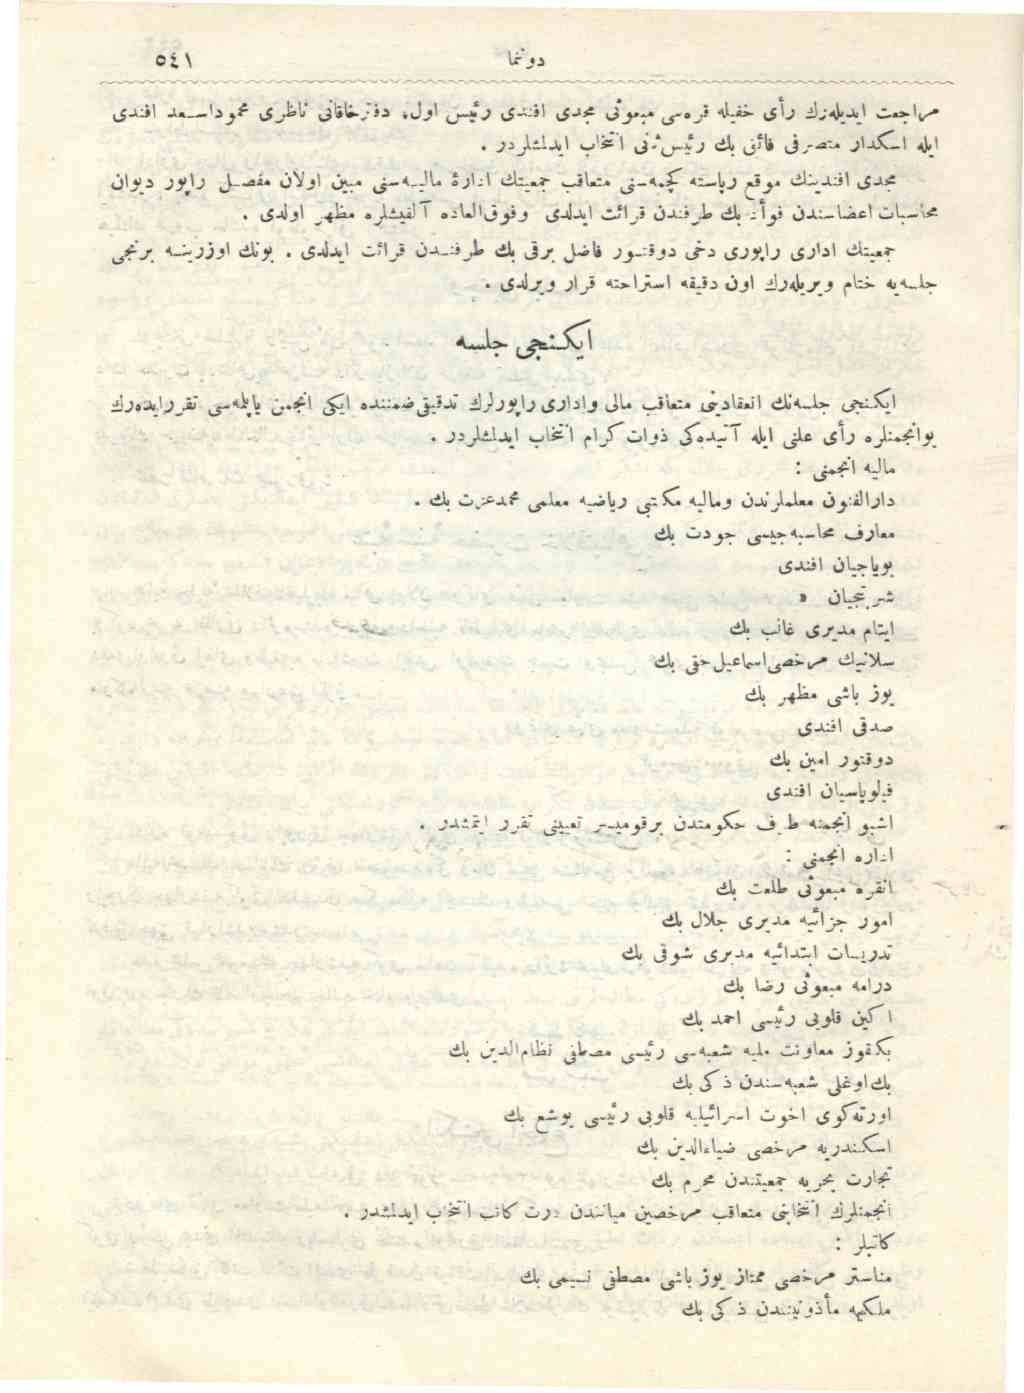 دوننما
٥٤١
مراجعت ايديله‌رك رأى خفيله قره‌سى مبعوثى مجدى افندى رئيس اول، دفترخاقانى ناظرى محموداسـعد افندى
ايله اسكدار متصرفى فائق بك رئيس ثانى انتخاب ايدلمشلردر .
مجدى افندينك موقع رياسته كچمه‌سنى متعاقب جمعيتك ادارهٔ ماليه‌سنى مبين اولان مفصـل راپور ديوان
محاسبات اعضاسندن فوأد بك طرفندن قرائت ايدلدى وفوق‌العاده آلقيشلره مظهر اولدى .
جمعيتك ادارى راپورى دخى دوقتـور فاضل برقى بك طرفنـدن قرائت ايدلدى . بونك اوزرينـه برنجى
جلسه‌يه ختام ويريله‌رك اون دقيقه استراحته قرار ويرلدى .
ايكـنجى جلسه
ايكـنجى جلسه‌نك انعقادينى متعاقب مالى وادارى راپورلرك تدقيقى ضمننده ايكى انجمن ياپلمه‌سى تقررايده‌رك
بوانجمنلره رأى علنى ايله آتيده‌كى ذوات كرام انتخاب ايدلمشلردر .
ماليه انجمنى :
دارالفنون معلملرندن وماليه مكـتبى رياضيه معلمى محمدعزت بك .
معارف محاسبه‌جيسى جودت بك
بوياجيان افندى
شربتجيان »
ايتام مديرى غالب بك
سلانيك مرخصى‌اسماعيل‌حقى بك
يوز باشى مظهر بك
صدقى افندى
دوقتور امين بك
فيلوپاسيان افندى
اشبو انجمنه طرف حكومتدن برقوميسر تعيينى تقرر ايتمشدر .
اداره انجمنى :
انقره مبعوثى طلعت بك
امور جزائيه مديرى جلال بك
تدريسات ابتدائيه مديرى شوقى بك
درامه مبعوثى رضا بك
اكين قلوبى رئيسى احمد بك
بكـقوز معاونت مليه شعبه‌سى رئيسى مصطفى نظام‌الدين بك
بك‌اوغلى شعبه‌سندن ذكى بك
اورته‌كوى اخوت اسرائيليه قلوبى رئيسى يوشع بك
اسكـندريه مرخصى ضياءالدين بك
تجارت بحريه جمعيتندن محرم بك
انجمنلرك انتخابنى متعاقب مرخصين مياننـدن درت كاتب انتخاب ايدلمشدر .
كاتبلر :
مناستر مرخصى ممتاز يوز باشى مصطفى نسيمى بك
ملكيه مأذونيندن ذكى بك